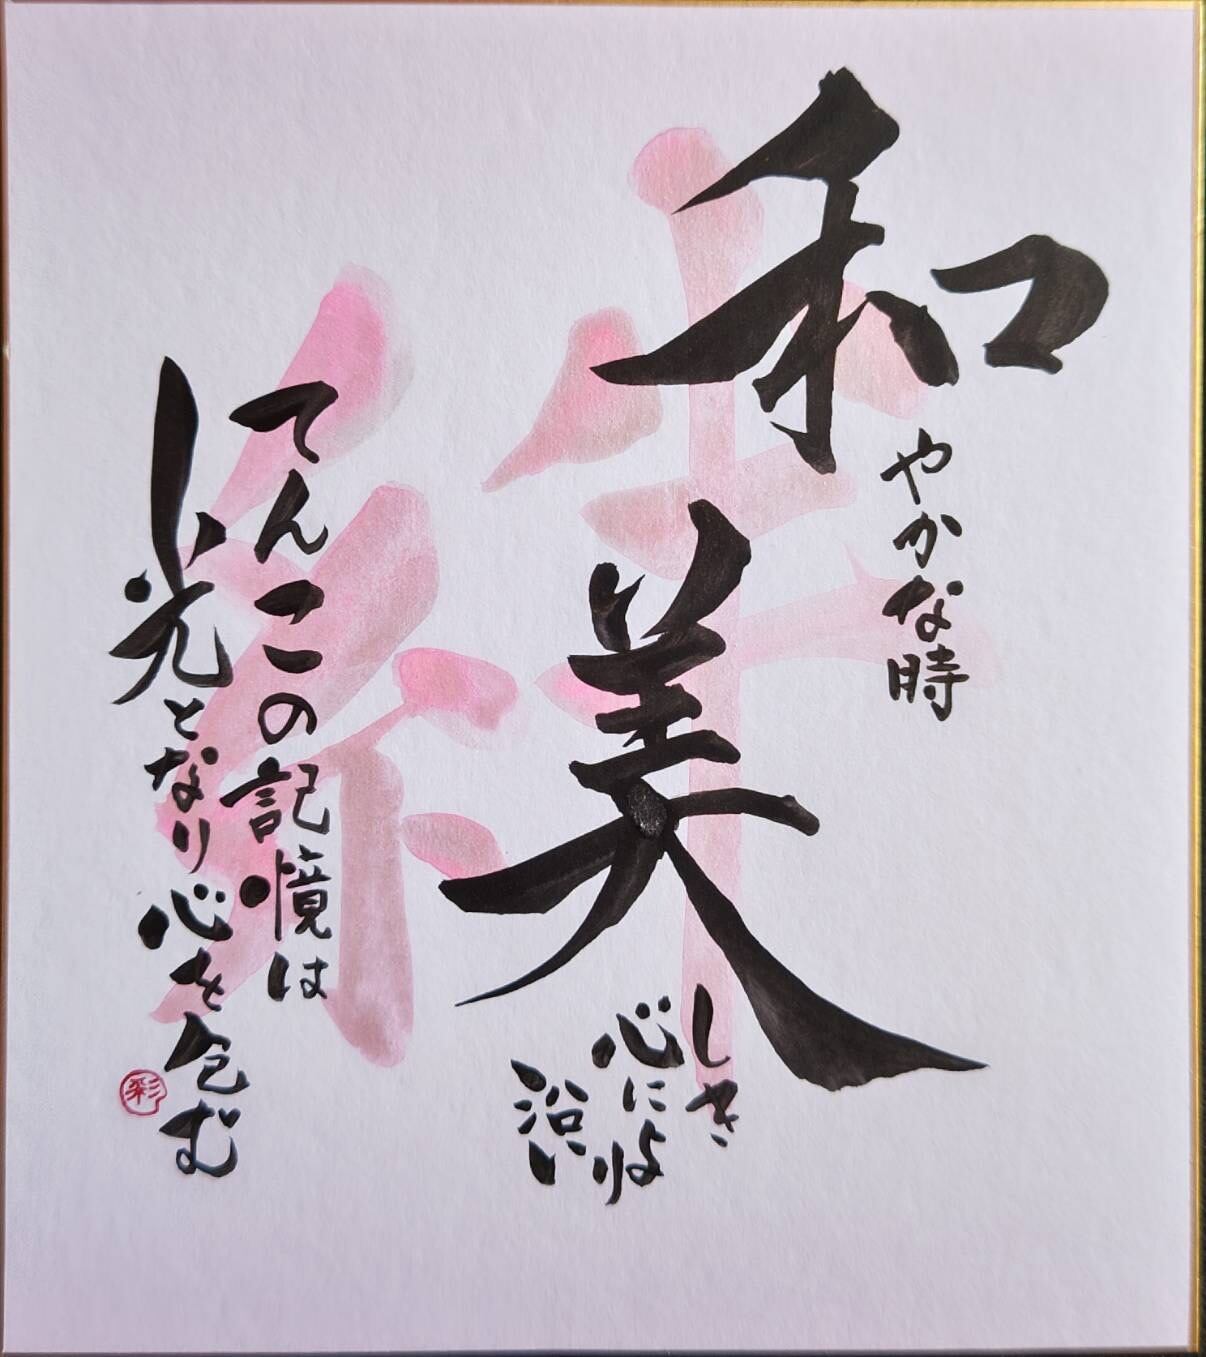 和やかな時
美しき
心により
沿い
てんこの記憶は
光となり心を包む
絆
彩